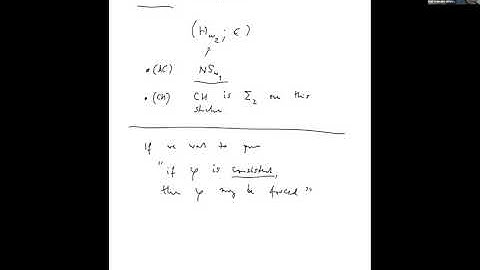 (H_{ω_2}; ∈)
• (AC) NS_{ω_1}
• (CH) CH is Σ_2 over this
structure
If we want to
"if φ is consistent,
then φ may be forced"